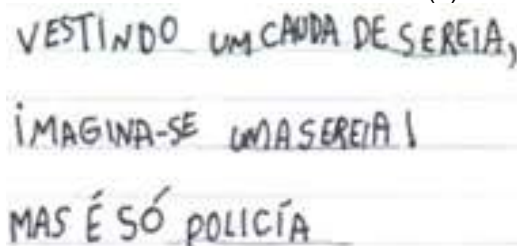 VESTINDO UM CAUDA DE SEREIA,
IMAGINA-SE UMA SEREIA!
MAS É SÓ POLICÍA